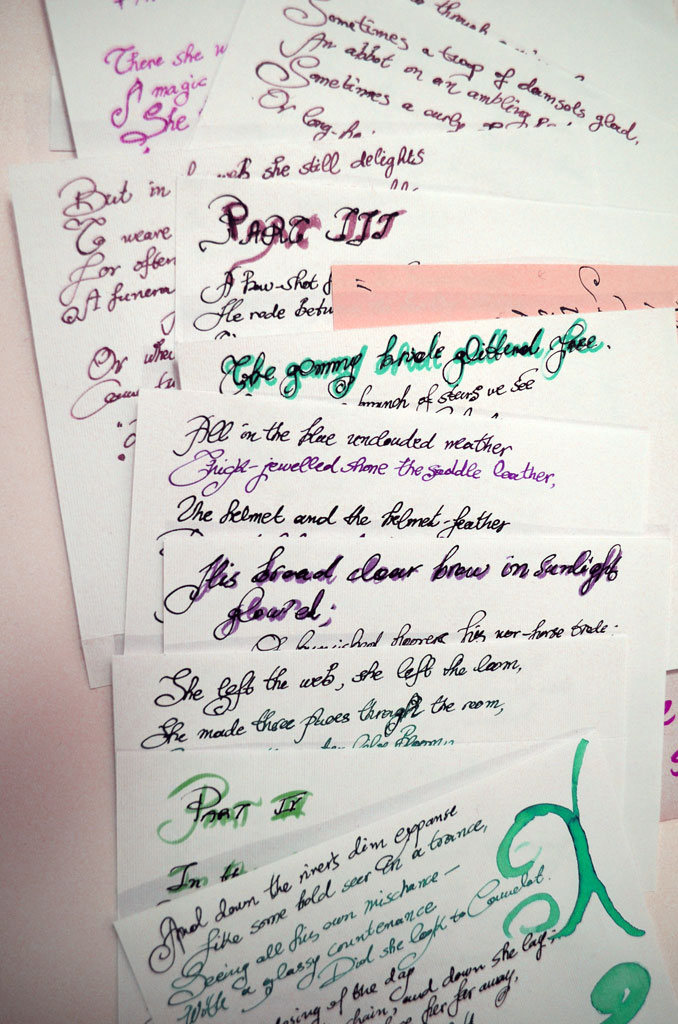 through
Sometimes a troop of damsols glad,
An abbot on an ambling
Sometimes a curly
Or long-ha
There she w
A magic
She
But in she still delights
To weave
For often
A funera
Or when
PART III
A Bow-shot f
He rode betw
=
The gemmy bridle glitterd free.
branch of stars we see
All in the blue unclouded weather
Thick-jewelled shone the saddle leather,
The helmet and the helmet-feather
His broad clear brow in sunlight
glow'ed;
On burnished hooves his war-horse trode:
She left the web, she left the loom,
She made three paces through the room,
PART IV
In
And down the river's dim expanse
Like some bold seer in a trance,
Seeing all his own mischance—
With a glassy countenance
Did she look to Camelot.
losing of the day
chain, and down she lay;
her far away,